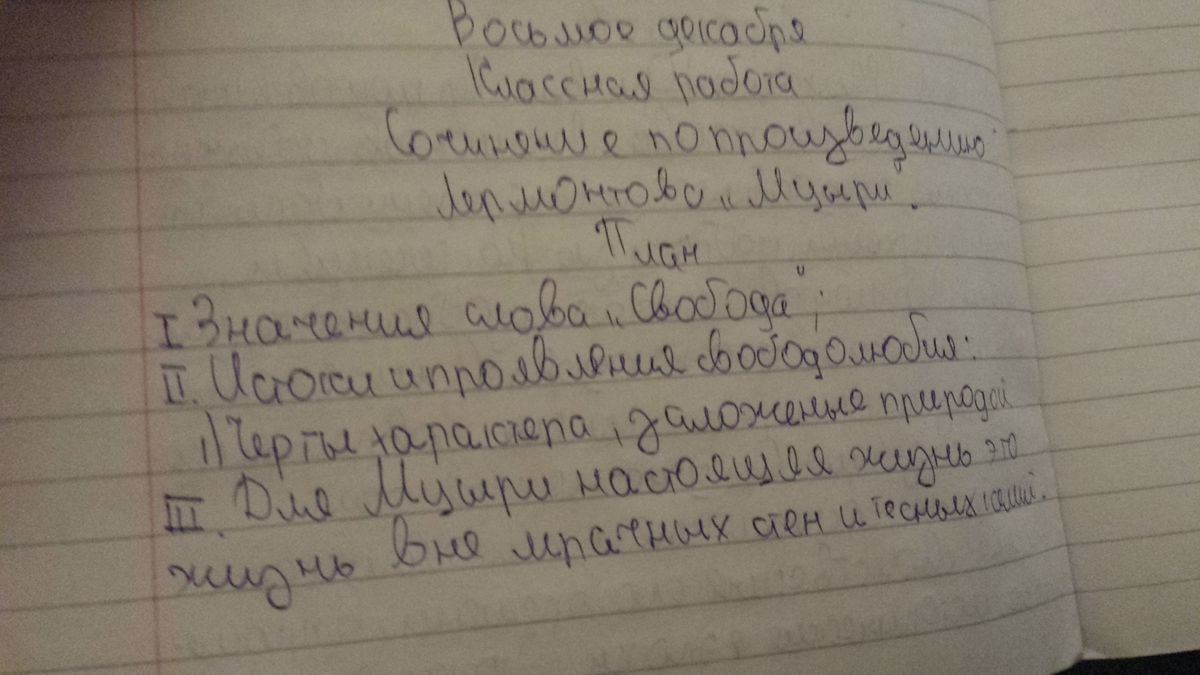 Восьмое декабря
Классная работа
Сочинение по произведению
Лермонтова „Мцыри".
План
I. Значения слова „Свобода";
II. Истоки и проявления свободолюбия:
1) Черты характера, заложеные природой
III. Для Мцыри настоящая жизнь это
жизнь вне мрачных стен и тесных келий.